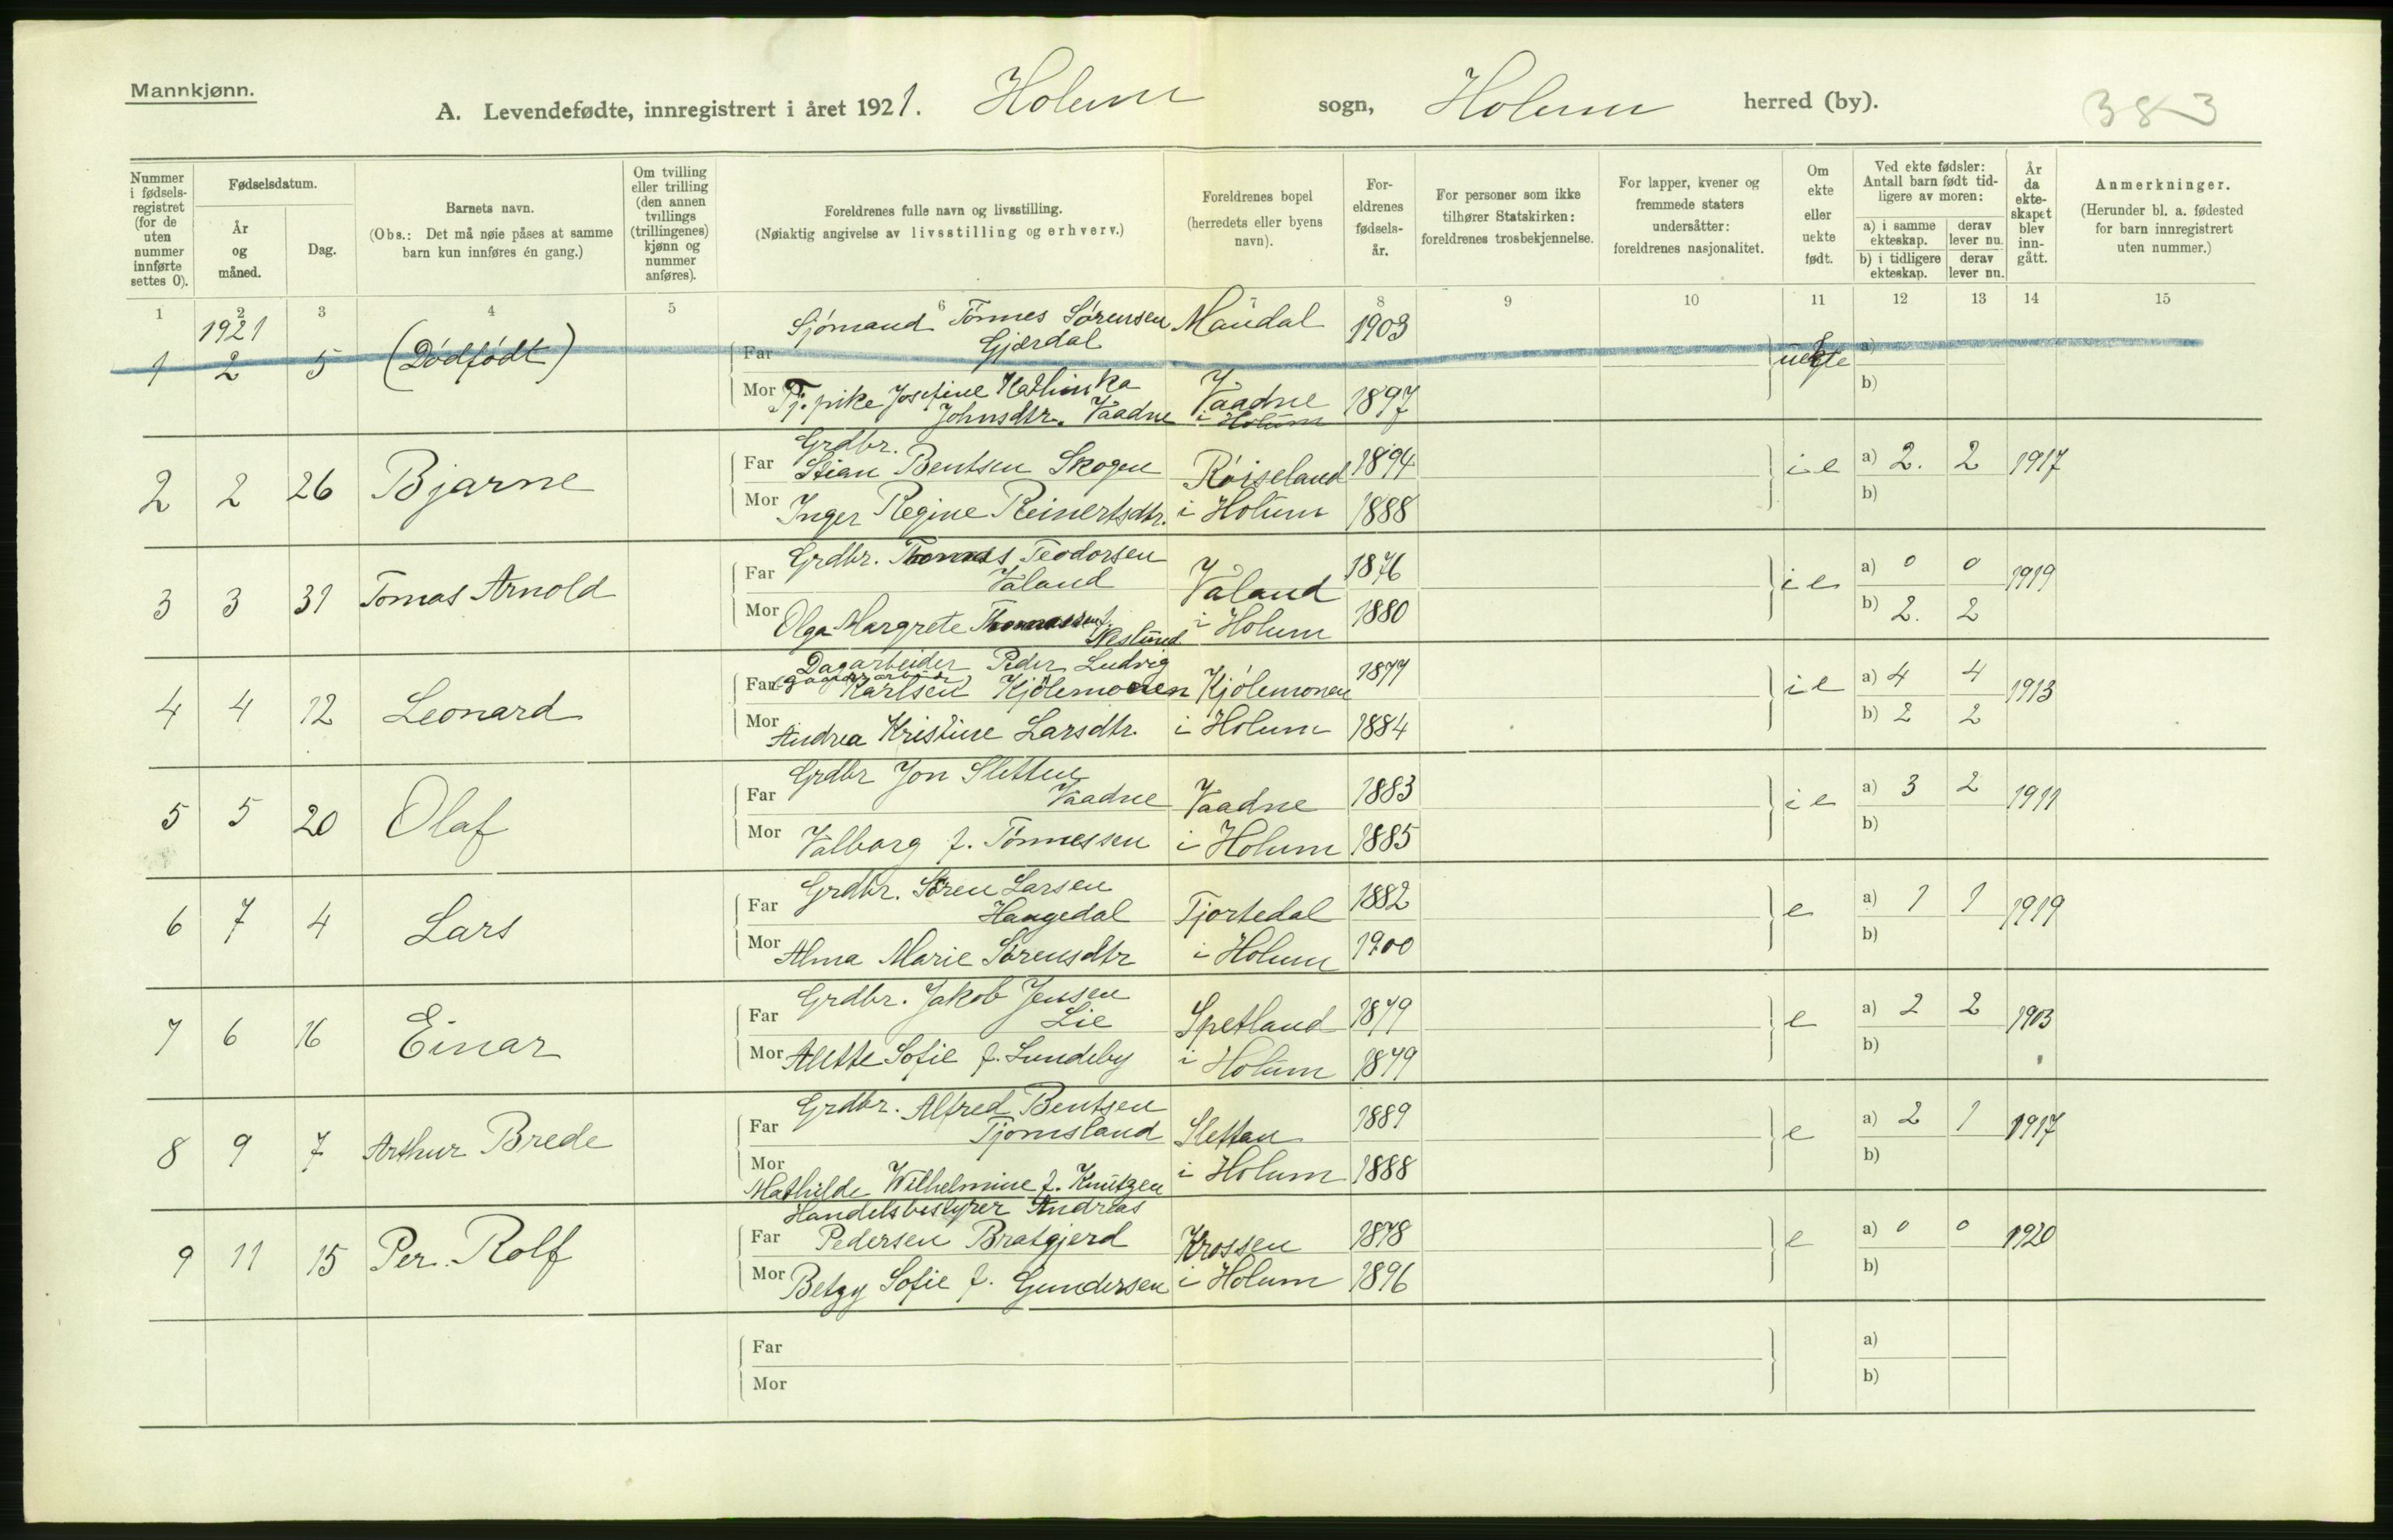 Mannkjønn.
A. Levendefødte, innregistrert i året 1921. Holum sogn, Holum herred (by). 383
Nummer i fødselsregistret (for de uten nummer innførte settes 0).
Fødselsdatum.
År og måned.
Dag.
Barnets navn.
(Obs.: Det må nøie påses at samme barn kun innføres én gang.)
Om tvilling eller trilling (den annen tvillings (trillingenes) kjønn og nummer anføres).
Foreldrenes fulle navn og livsstilling.
(Nøiaktig angivelse av livsstilling og erhverv.)
Foreldrenes bopel
(herredets eller byens navn).
Foreldrenes fødselsår.
For personer som ikke tilhører Statskirken: foreldrenes trosbekjennelse.
For lapper, kvener og fremmede staters undersåtter: foreldrenes nasjonalitet.
Om ekte eller uekte født.
Ved ekte fødsler: Antall barn født tidligere av moren:
a) i samme ekteskap. derav lever nu.
b) i tidligere ekteskap. derav lever nu.
År da ekteskapet blev inngått.
Anmerkninger.
(Herunder bl. a. fødested for barn innregistrert uten nummer.)
1 2 3 4 5 6 7 8 9 10 11 12 13 14 15
1921
1 2 5 (Dødfødt) Far Sjømand Tønnes Sørensen Gjærdal Mandal 1903 uegte a)
Mor Tj. pike Josefine Kathinka Johnsdtr. Vaadne Vaadne i Holum 1897 b)
2 2 26 Bjarne Far Grdbr. Stian Bentsen Skogen Røiseland 1894 i e a) 2. 2 1917
Mor Inger Regine Reinertsdtr. i Holum 1888 b)
3 3 31 Tomas Arnold Far Grdbr. Thomas Teodorsen Valand Valand 1876 i e a) 0 0 1919
Mor Olga Margrete i Holum 1880 b) 2. 2
4 4 12 Leonard Far Dagarbeider Peder Ludvig Karlsen Kjølemonen Kjølemonen 1877 i e a) 4 4 1913
Mor Andrea Kristine Larsdtr. i Holum 1884 b) 2 2
5 5 20 Olaf Far Grdbr Jon Sletten Vaadne Vaadne 1883 i e a) 3 2 1911
Mor Valborg f. Tønnessen i Holum 1885 b)
6 7 4 Lars Far Grdbr. Søren Larsen Haugedal Tjortedal 1882 e a) 1 1 1919
Mor Alma Marie Sørensdtr i Holum 1900 b)
7 6 16 Einar Far Grdbr. Jakob Jensen Lie Spetland 1879 e a) 2 2 1903
Mor Alette Sofie f. Lundeby i Holum 1879 b)
8 9 7 Arthur Brede Far Grdbr. Alfred Bentsen Tjomsland Slettan 1889 e a) 2 1 1917
Mor Mathilde Wilhelmine f. Knutzen i Holum 1888 b)
9 11 15 Per Rolf Far Handelsbestyrer Andreas Pedersen Bratgjerd Krossen 1878 e a) 0 0 1920
Mor Betzy Sofie f. Gundersen i Holum 1896 b)
Far a)
Mor b)